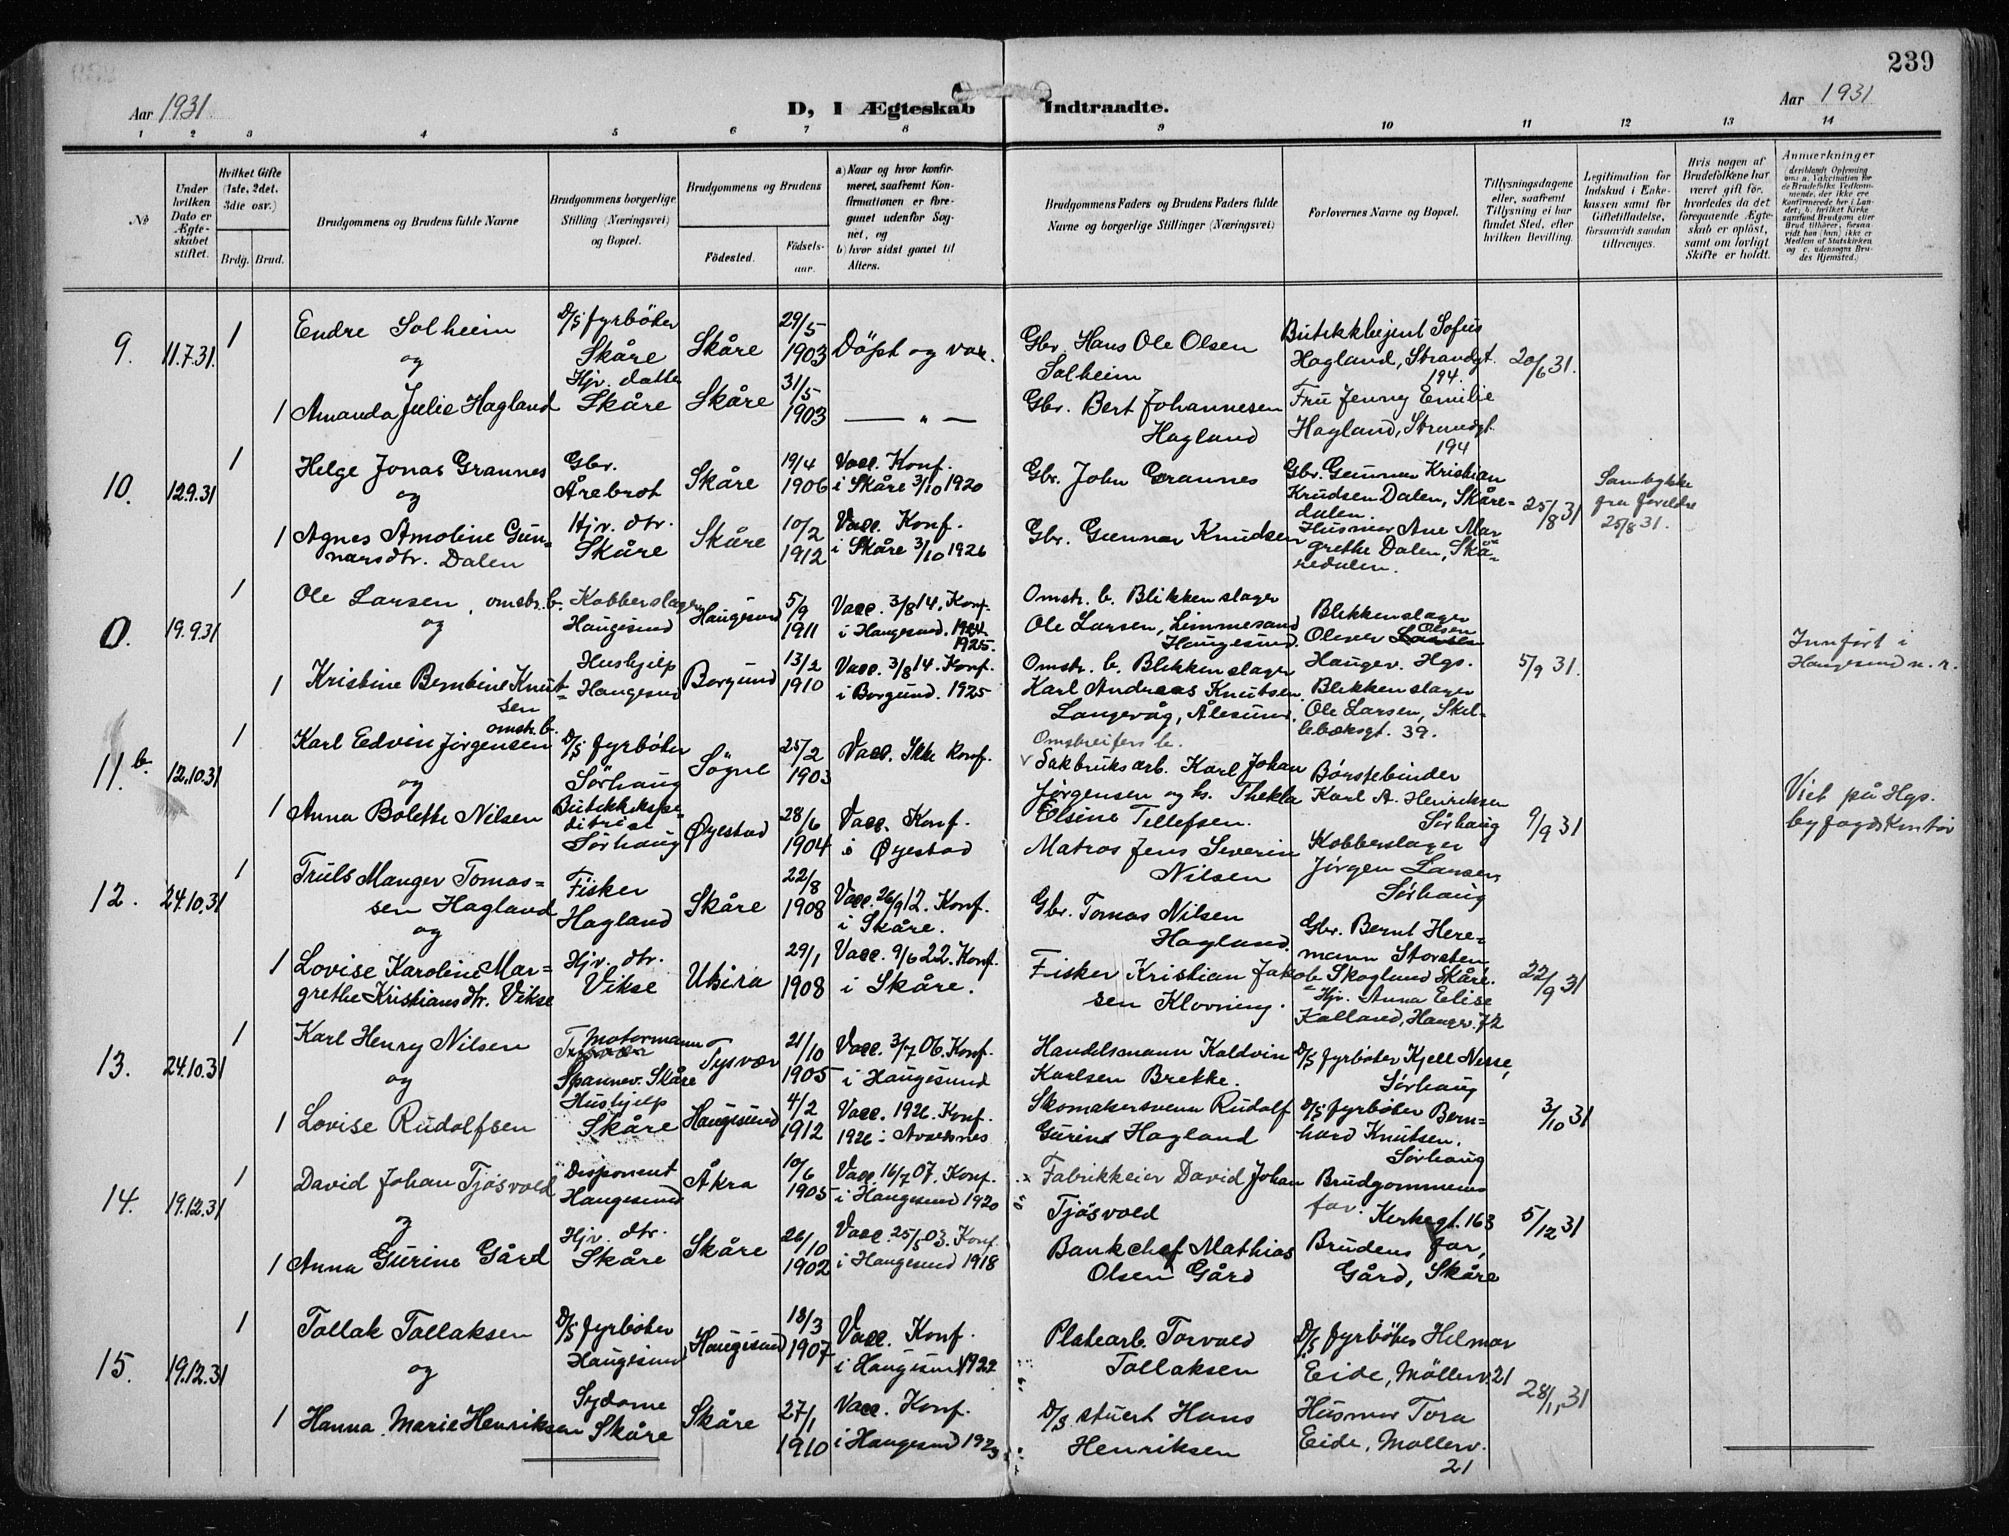 239
Aar 1931
D, I Ægteskab Indtraadte.
Aar 1931
1 2 3 4 5 6 7 8 9 10 11 12 13 14
No
Under hvilken Dato er Ægteskabet stiftet.
Hvilket Gifte (1ste, 2det, 3die osv.)
Brdg. Brud.
Brudgommens og Brudens fulde Navne
Brudgommens borgerlige Stilling (Næringsvei) og Bopæl.
Brudgommens og Brudens
Fødested.
Fødsels-aar.
a) Naar og hvor konfirmeret, saafremt Konfirmationen er foregaaet udenfor Sognet, og
b) hvor sidst gaaet til Alters.
Brudgommens Faders og Brudens Faders fulde Navne og borgerlige Stillinger (Næringsvei)
Forlovernes Navne og Bopæl.
Tillysningsdagene eller, saafremt Tillysning ei har fundet Sted, efter hvilken Bevilling.
Legitimation for Indskud i Enkekassen samt for Giftetilladelse, forsaavidt saadan tiltrænges.
Hvis nogen af Brudefolkene har været gift før, hvorledes da det foregaaende Ægteskab er opløst, samt om lovligt Skifte er holdt.
Anmerkninger
9. 11.7.31. 1 Endre Solheim
D/S fyrböter Skåre
Skåre
29/5 1903
Döpt og vac.
Gbr. Hans Ole Olsen Solheim
Butikkbejent Sofus Hagland, Strandgt. 194.
20/6 31.
og
1 Amanda Julie Hagland
Hjv. datter Skåre
Skåre
31/5 1903
— " —
Gbr. Bert Johannesen Hagland
Fru Jenny Emilie Hagland, Strandgt. 194
10. 12.9.31 1 Helge Jonas Grannes
Gbr. Årebrot
Skåre
19/4 1906
Vacc. Konf. i Skåre 3/10 1920
Gbr. John Grannes
Gbr. Gunnar Kristian Knudsen Dalen, Skåredalen.
25/8 31
Samtykke fra foreldre 25/8 31.
og
1 Agnes Amoline Gunnarsdtr. Dalen
Hjv. dtr. Skåre
Skåre
10/2 1912
Vacc. Konf. i Skåre 3/10 1926
Gbr. Gunnar Knudsen
Husmor Ane Margrethe Dalen, Skåredalen.
0. 19.9.31 1 Ole Larsen, omstr. b.
Kobberslager Haugesund
Haugesund
5/9 1911
Vacc. 3/8 14. Konf. i Haugesund. 1925.
Omstr. b. Blikkenslager Ole Larsen, Haugesund.
Blikkenslager Oliver Olsen Haugev. Hgs.
5/9 31.
Innfört i Haugesund m. r.
og
1 Kristine Bernbine Knutsen omstr. b.
Hushjelp Haugesund
Borgund
13/2 1910
Vacc. 3/8 14. Konf. i Borgund. 1925
Omstr. b. Blikkenslager Karl Andreas Knutsen Langevåg, Ålesund.
Blikkenslager Ole Larsen, Skillebæksgt. 39.
11.b. 12.10.31 1 Karl Edvin Jørgensen
D/S fyrböter Sørhaug
Søgne
25/2 1903
Vacc. Ikke konf.
Omstreifers b.
Sakbruksarb. Karl Johan Jørgensen og h. Thekla Elsine Tellefsen.
Børstebinder Karl A. Henriksen Sørhaug
9/9 31
Viet på Hgs. byfogdkontor
og
1 Anna Bolette Nilsen
Butikkekspeditrise Sørhaug
Øyestad
28/6 1904
Vacc. Konf. i Øyestad
Matros Jens Severin Nilsen
Kobberslager Jørgen Larsen, Sørhaug
12. 24.10.31 1 Truls Manger Tomassen Hagland
Fisker Hagland
Skåre
22/8 1908
Vacc. 26/9 12. Konf. i Skåre.
Gbr. Tomas Nilsen Hagland.
Gbr. Bernt Heremann Storsten Skogland Skåre.
22/9 31
og
1 Lovise Karoline Margrethe Kristiansdtr. Vikse
Hjv. dtr. Vikse
Utsira
29/1 1908
Vacc. 9/6 22. Konf. i Skåre.
Fisker Kristian Jakobsen Klovning.
Hjv. Anna Elise Kalland, Haugev. 72
13. 24.10.31 1 Karl Henry Nilsen
Motormann Spannav. Skåre
Tysvær
21/10 1905
Vacc. 3/7 06. Konf. i Haugesund
Handelsmann Kaldvin Karlsen Brekke.
D/S fyrböter Kjell Nesse, Sørhaug
3/10 31
og
1 Lovise Rudolfsen
Hushjelp Skåre
Haugesund
4/2 1912
Vacc. 1926. Konf. 1926 i Avaldsnes
Skomakersvenn Rudolf Gurin Hagland
D/S fyrböter Bernhard Knutsen. Sørhaug
14. 19.12.31 1 David Johan Tjösvold
Disponent Haugesund
Åkra
10/6 1905
Vacc. 16/7 07. Konf. i Haugesund 1920
Fabrikkeier David Johan Tjösvold
Brudgommens far. Kirkegt. 163
5/12 31
og
1 Anna Gurine Gård
Hjv. dtr. Skåre
Skåre
26/10 1902
Vacc. 25/5 03. Konf. i Haugesund 1918
Bankchef Mathias Olsen Gård
Brudens far, Gård, Skåre
15. 19.12.31 1 Tollak Tollaksen
D/S fyrböter Haugesund
Haugesund
18/3 1907
Vacc. Konf. i Haugesund 1922
Platearb. Torvald Tollaksen
D/S fyrböter Helmar Eide, Möllerv. 21
28/11 31
og
1 Hanna Marie Henriksen
Sydame Skåre
Skåre
27/1 1910
Vacc. Konf. i Haugesund 1923
D/S. stuert Hans Henriksen
Husmor Tora Eide, Möllerv. 21